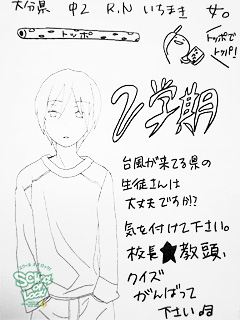 大分県 中2 R.N いちまき 女。
トッポ
トッポで
トッパ!
2学期
台風が来てる県の
生徒さんは
大丈夫ですか!?
気を付けて下さい。
校長★教頭、
クイズ
がんばって
下さい
SCHOOL
OF
LOCK!